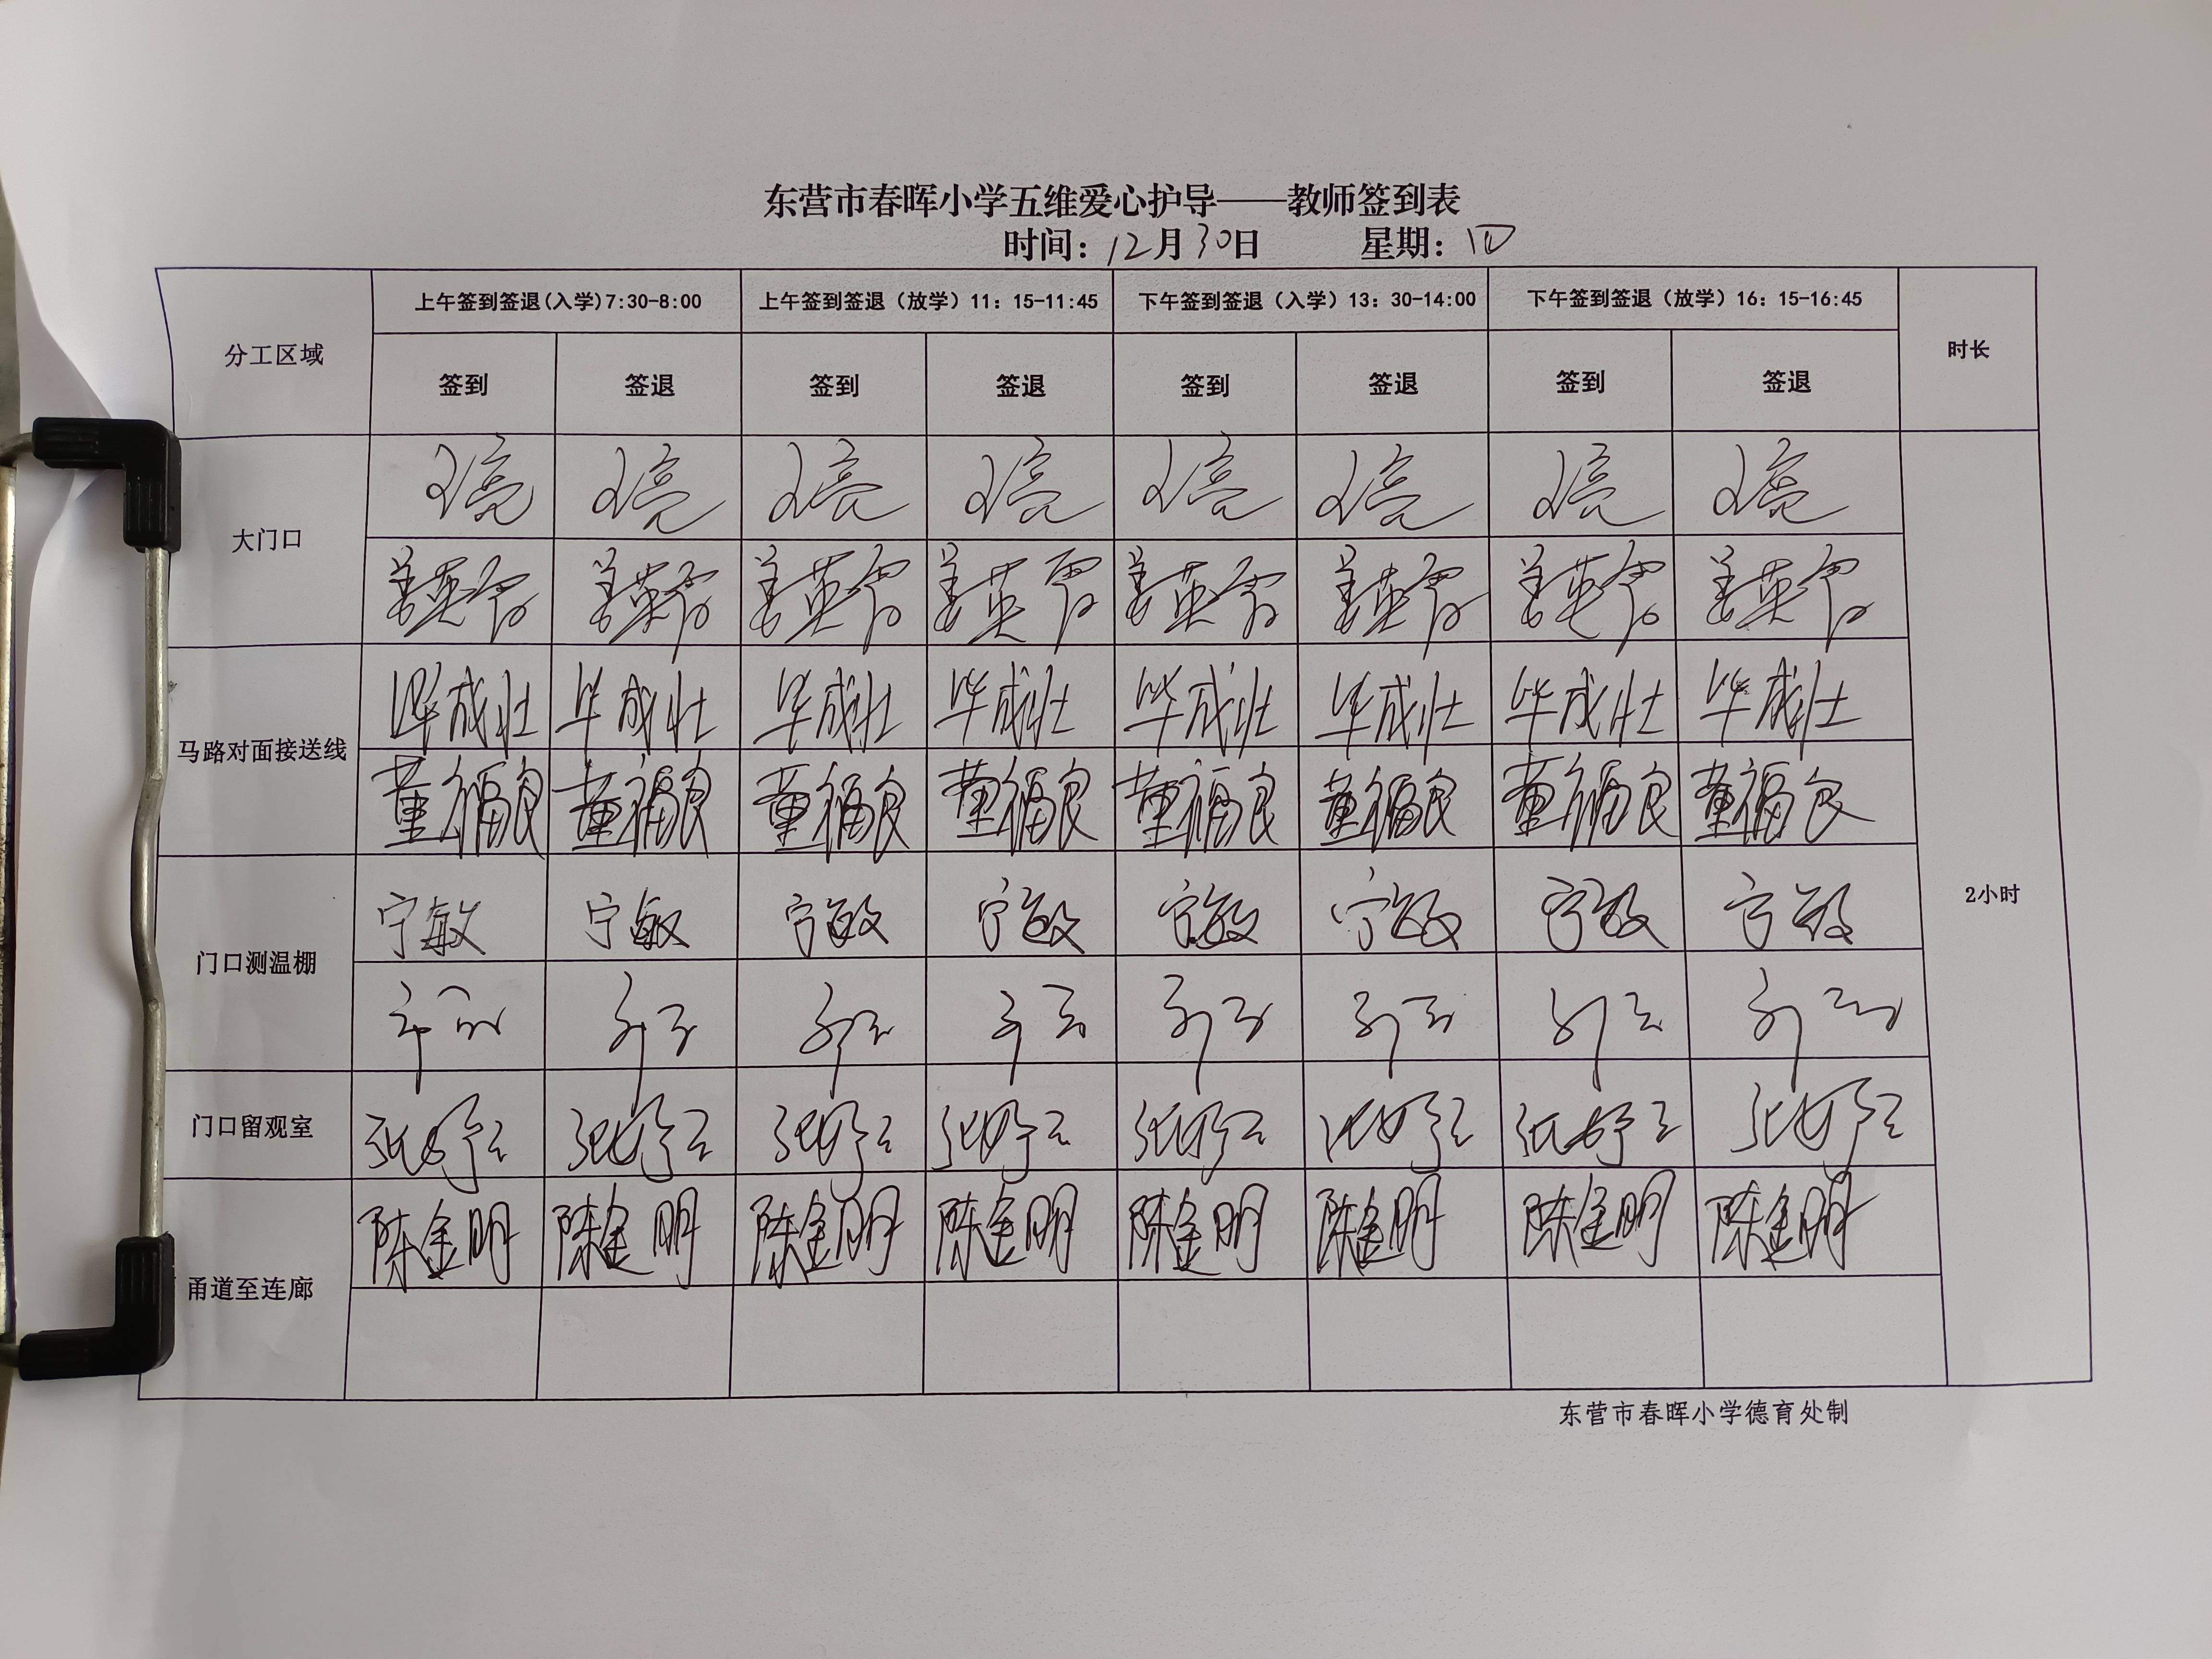 东营市春晖小学五维爱心护导——教师签到表
时间：12月30日 星期：四
分工区域 上午签到签退(入学)7:30-8:00 上午签到签退（放学）11：15-11:45 下午签到签退（入学）13：30-14:00 下午签到签退（放学）16：15-16:45 时长
签到 签退 签到 签退 签到 签退 签到 签退
大门口
王亮 王亮 王亮 王亮 王亮 王亮 王亮 王亮
姜英 姜英 姜英 姜英 姜英 姜英 姜英 姜英
马路对面接送线
毕成壮 毕成壮 毕成壮 毕成壮 毕成壮 毕成壮 毕成壮 毕成壮
董福良 董福良 董福良 董福良 董福良 董福良 董福良 董福良
门口测温棚
宁敏 宁敏 宁敏 宁敏 宁敏 宁敏 宁敏 宁敏
2小时
门口留观室
张 张 张 张 张 张 张 张
甬道至连廊
陈金明 陈金明 陈金明 陈金明 陈金明 陈金明 陈金明 陈金明
东营市春晖小学德育处制